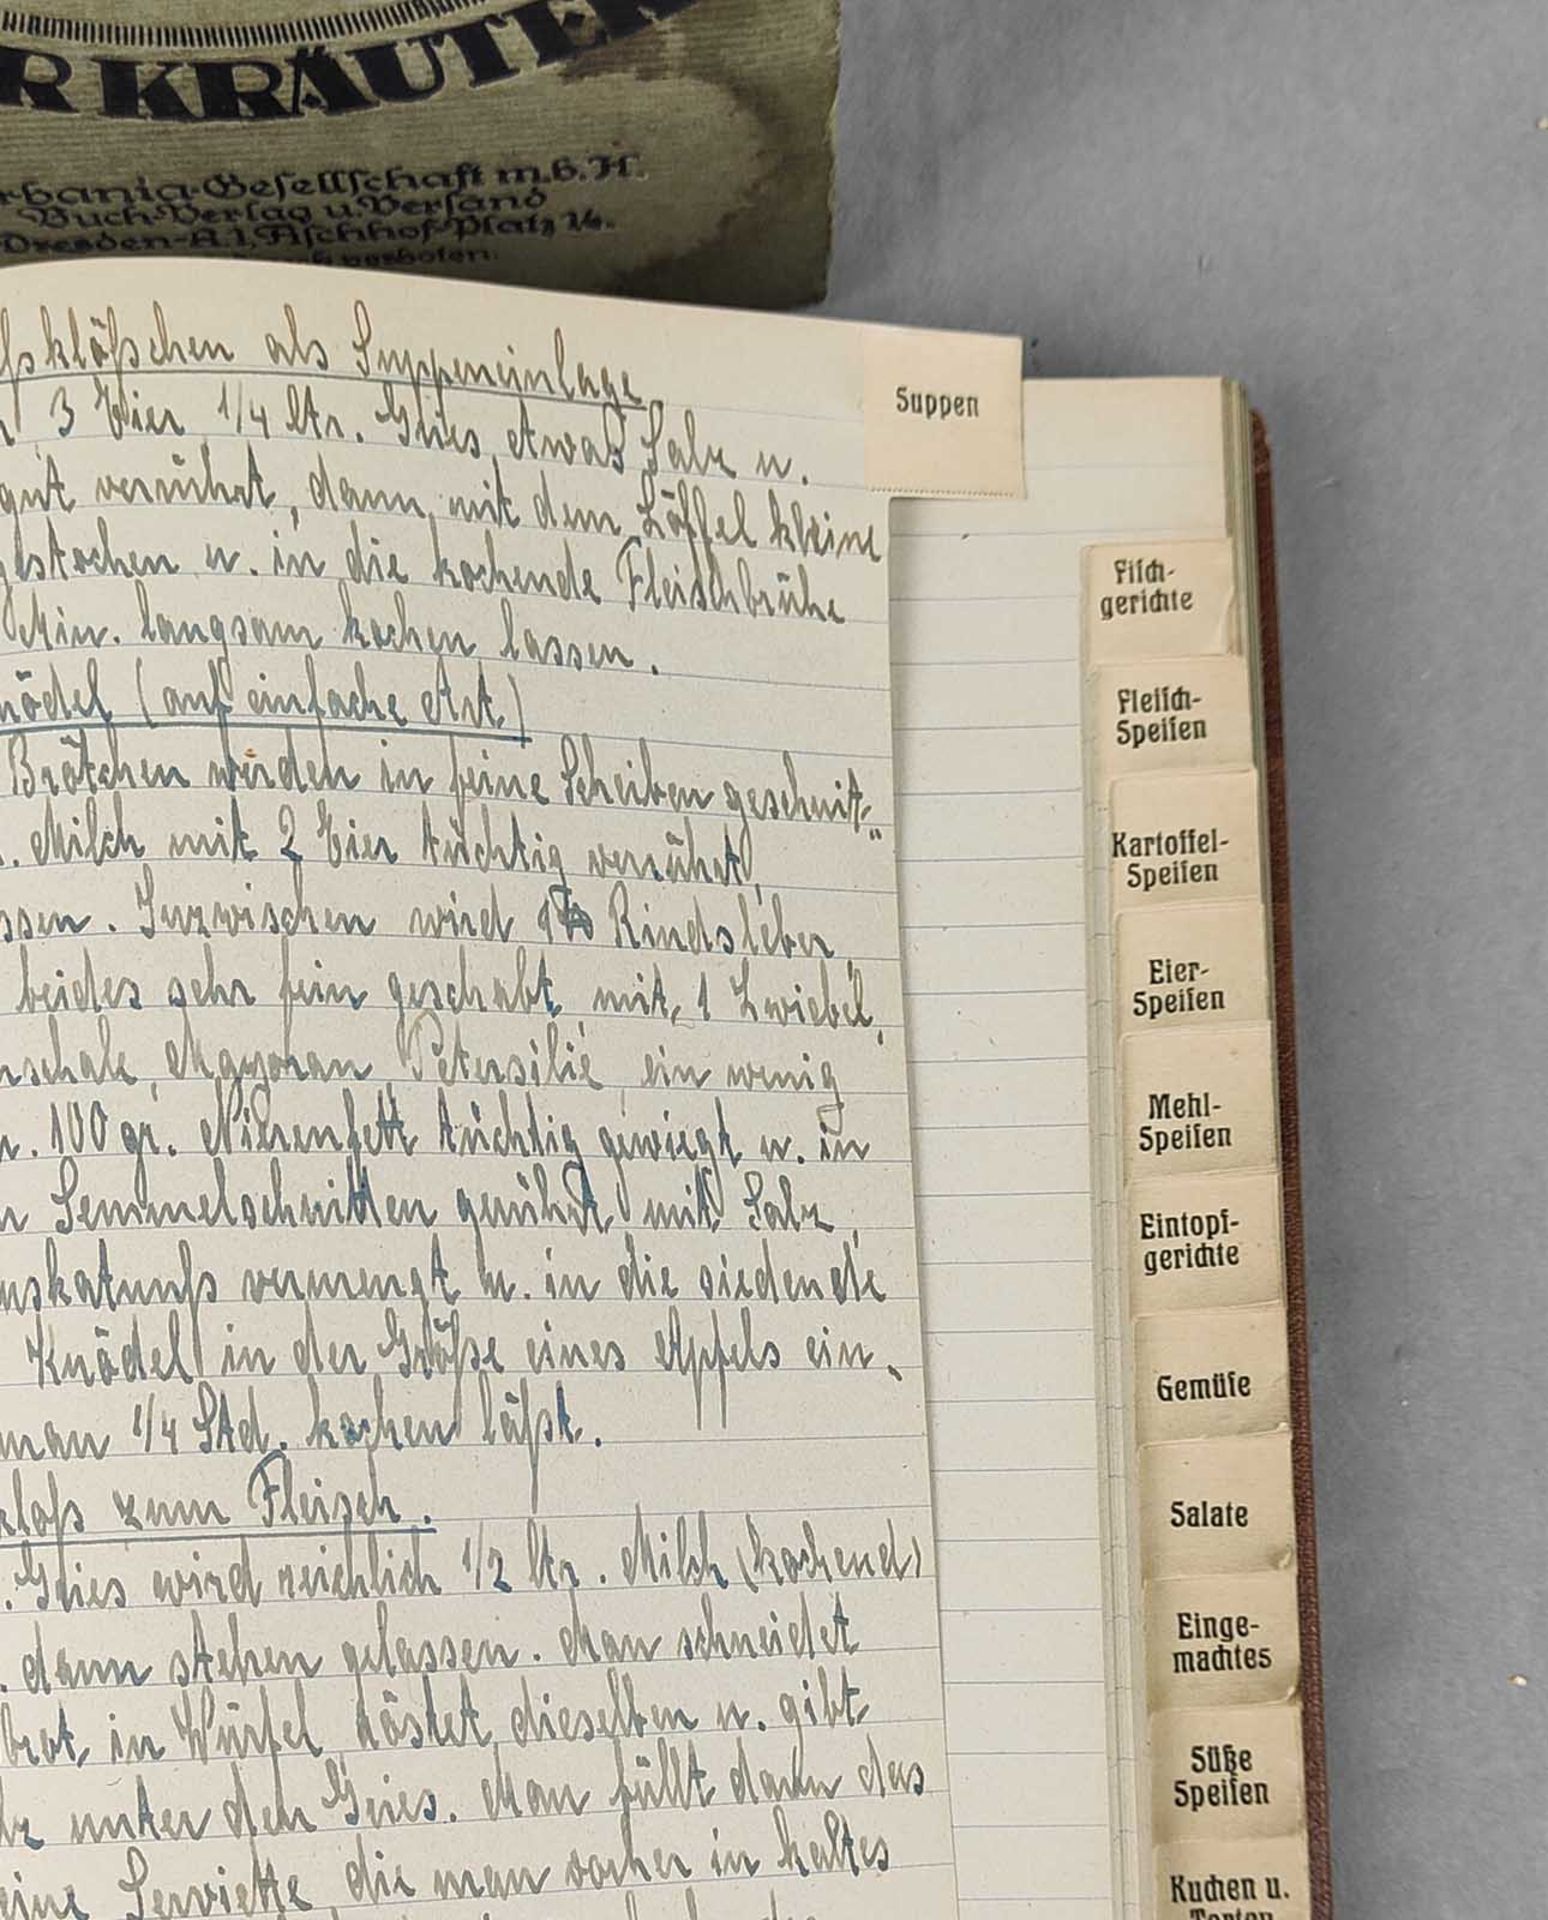 R KRÄUTER
rbania-Geſellſchaft m.b.H.
Buch-Verlag u. Verſand
Dresden-A.1, Aſchhof-Platz 14.
verboten.
ßklößchen als Suppeneinlage
3 Eier 1/4 ltr. Gries etwas Salz u.
gut verrührt, dann mit dem Löffel kleine
gestochen u. in die kochende Fleischbrühe
Min. langsam kochen lassen.
nödel (auf einfache Art.)
Brötchen werden in feine Scheiben geschnit-
Milch mit 2 Eier tüchtig verrührt,
ssen. Inzwischen wird Rindsleber,
beides sehr fein geschabt mit 1 Zwiebel,
nschale, Mayoran, Petersilie ein wenig
u. 100 gr. Nierenfett tüchtig gewiegt u. in
n Semmelschnitten gerührt mit Salz,
uskatnuß vermengt u. in die siedende
Knödel in der Größe eines Apfels ein,
man 1/4 Std. kochen läßt.
kloß zum Fleisch.
. Gries wird reichlich 1/2 ltr. Milch (kochend)
. dann stehen gelassen. Man schneidet
brot in Würfel röstet dieselben u. gibt
unter den Gries. Man füllt dann das
eine Serviette die man vorher in kaltes
Suppen
Fiſch-
gerichte
Fleiſch-
Speiſen
Kartoffel-
Speiſen
Eier-
Speiſen
Mehl-
Speiſen
Eintopf-
gerichte
Gemüſe
Salate
Einge-
machtes
Süße
Speiſen
Kuchen u.
Torten